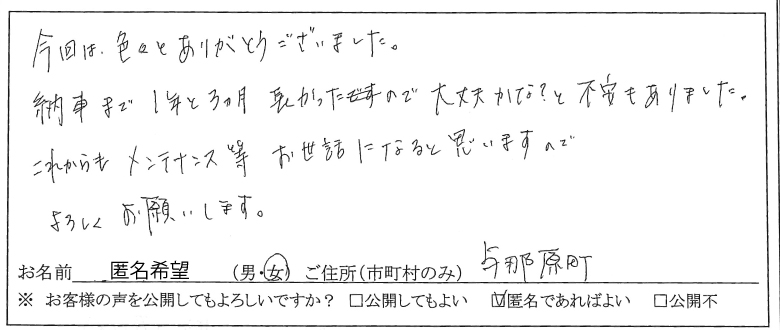 今回は、色々とありがとうございました。
納車まで 1年と3ヵ月 長かったですので 大丈夫かな?と 不安もありました。
これからも メンテナンス等 お世話になると思いますので
よろしく お願いします。
お名前 匿名希望 (男・女) ご住所(市町村のみ) 与那原町
※ お客様の声を公開してもよろしいですか? □公開してもよい ☑匿名であればよい □公開不